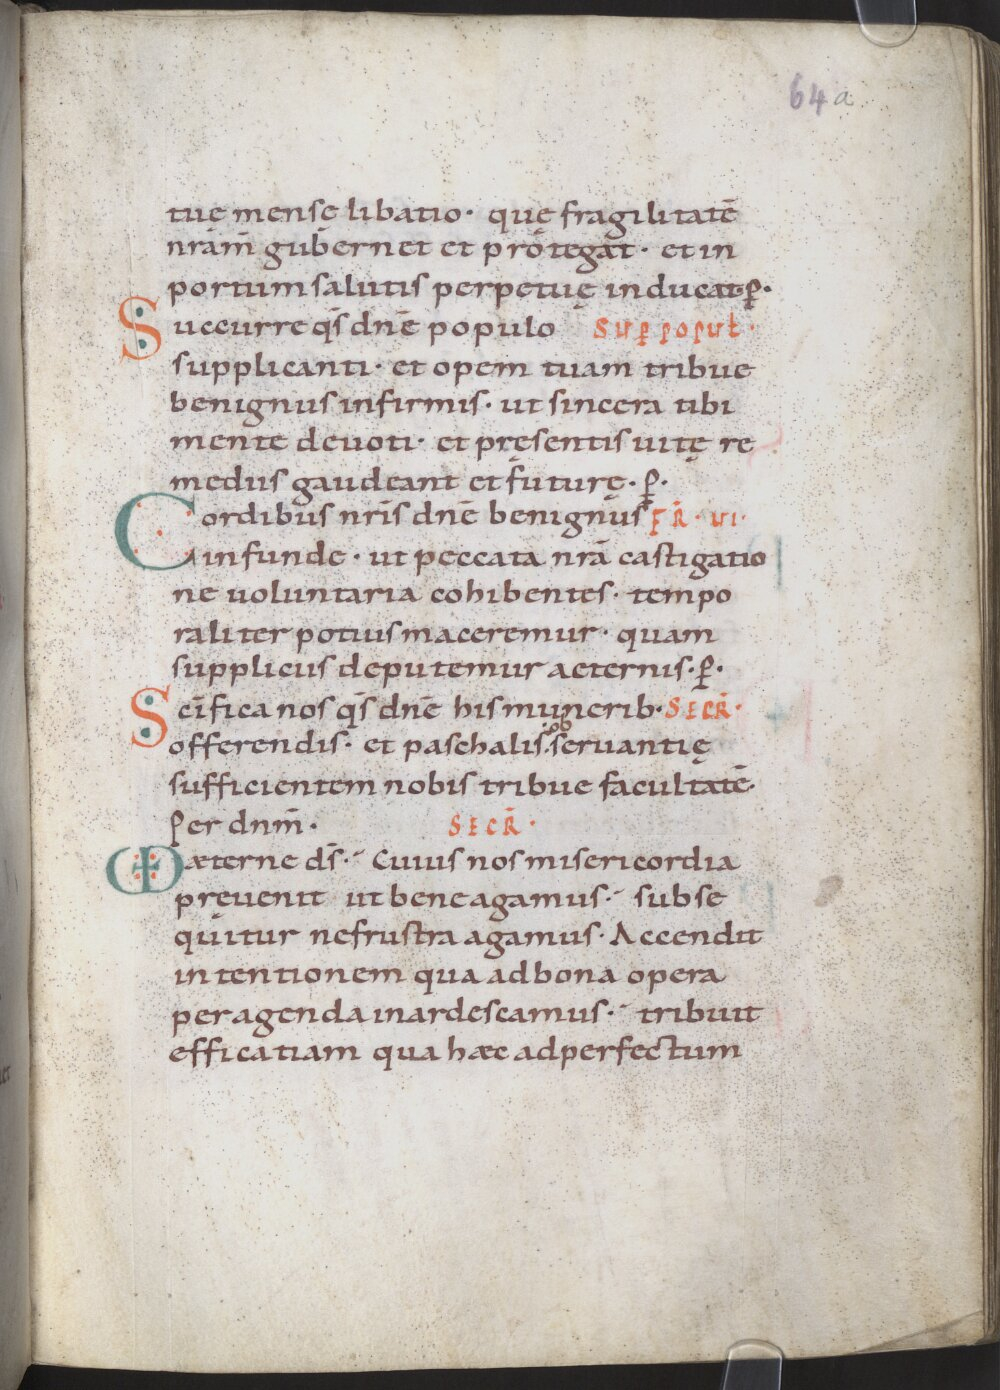 64a
tuę mensę libatio· quę fragilitatē
nr̄am̄ gubernet et protegat· et in
portum salutis perpetuę inducat p̱·
Succurre qs̄ dn̄e populo Sup popul·
supplicanti· et opem tuam tribue
benignus infirmis· ut sincera tibi
mente devoti· et pręsentis uitę re
mediis gaudeant et futurę· p̱·
Cordibus nr̄is dn̄e benignus FR̄· VI·
infunde· ut peccata nr̄a castigatio
ne uoluntaria cohibentes· tempo
raliter potius maceremur· quam
suppliciis deputemur aeternis· p̱·
Sc̄ifica nos qs̄ dn̄e his munerib· SECR̄·
offerendis· et paschalis obseruantię
sufficientem nobis tribue facultatē·
Per dnm̄· SECR̄·
VD æterne ds̄· Cuius nos misericordia
preuenit ut bene agamus· subse
quitur ne frustra agamus· Accendit
intentionem qua ad bona opera
peragenda inardescamus· tribuit
efficatiam qua hæc ad perfectum